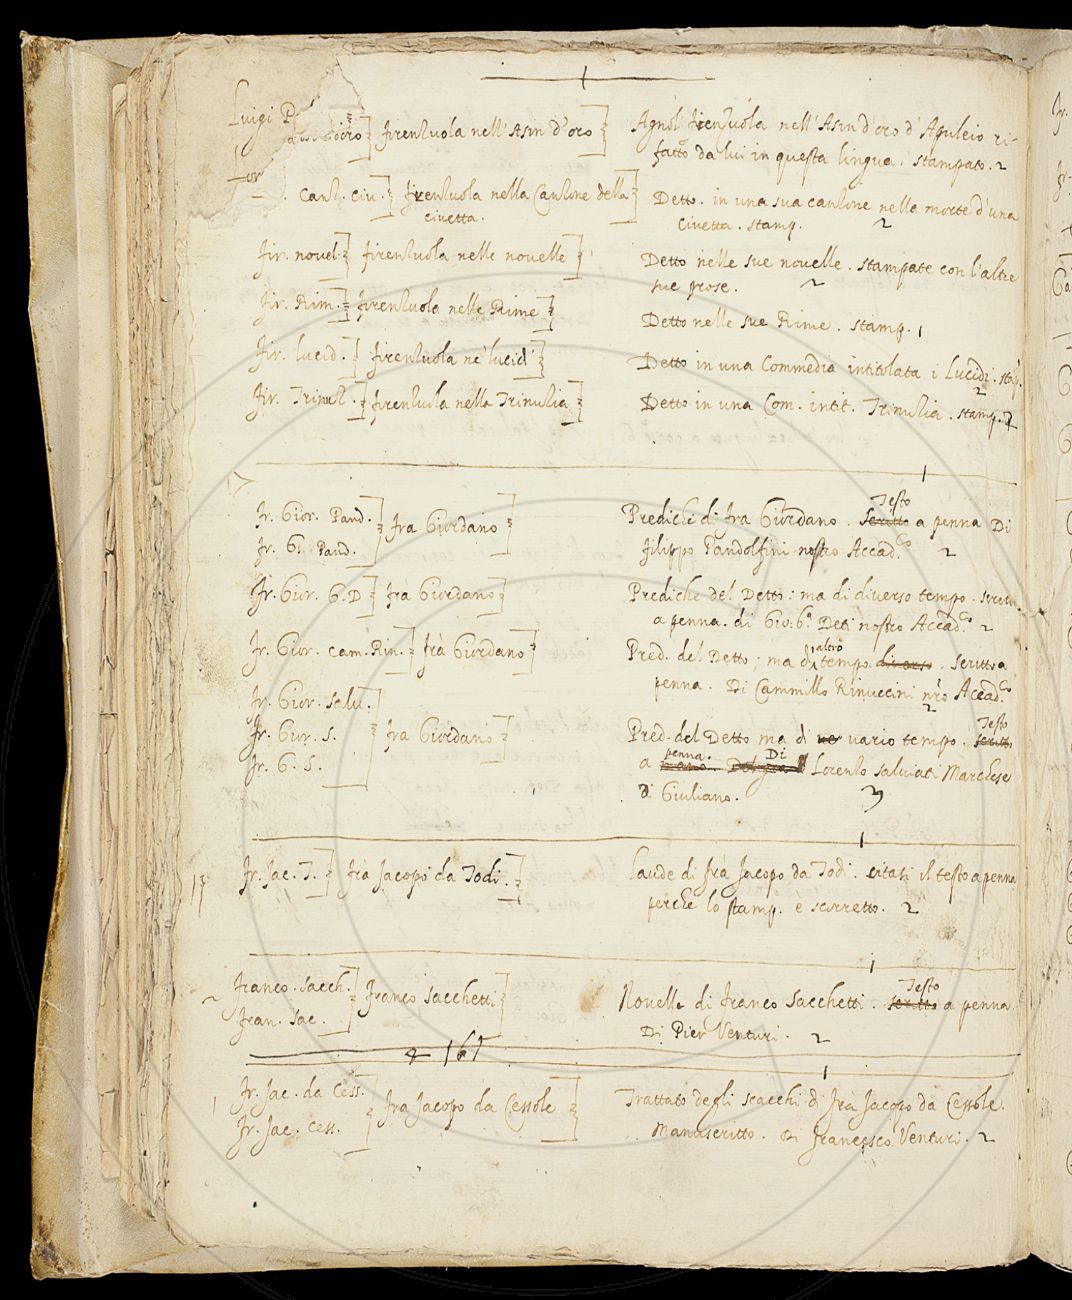 Luigi P
Asin d'oro] Firenzuola nell'Asin d'oro] Agnol Firenzuola nell'Asin d'oro d'Apuleio ri-
fatto da lui in questa lingua. stampato. 2
Canz. Civ.] Firenzuola nella Canzone della Detto. in una sua canzone nella morte d'una
civetta. Civetta. stamp. 2
Fir. novel.] Firenzuola nelle novelle] Detto nelle sue novelle. stampate con l'altre
sue prose. 2
Fir. Rim.] Firenzuola nelle Rime] Detto nelle sue Rime. stamp. 1
Fir. lucid.] Firenzuola ne' lucidi] Detto in una Commedia intitolata i Lucidi. stap.
2
Fir. Trinuz.] Firenzuola nella Trinuzia] Detto in una Com. intit. Trinuzia. stamp. 2
17
Fr. Gior. Pand.] Fra Giordano] Prediche di Fra Giordano. scritto Testo a penna Di
Fr. G. Pand. Filippo Pandolfini nostro Accad.co 2
Fr. Gior. G. D] Frà Giordano] Prediche del Detto: ma di diverso tempo. scritte
a penna. di Gio: Ba. Deti nostro Accad.co 2
Fr. Gior. Cam. Rin.] Frà Giordano] Pred. del Detto: ma di altro tempo diverso. scritto a
penna. Di Cammillo Rinuccini nro Accad.co
2
Fr. Gior. Salv.]
Fr. Gior. S. Fra Giordano] Pred. del Detto ma di ver vario tempo. scritto Testo
Fr. G. S. a penna. Di Lorenzo Salviati Marchese
di Giuliano. 3
15 Fr. Jac. T.] Frà Jacopo da Todi.] Laude di Frà Jacopo da Todi. citasi il testo a penna
perche lo stamp. è scorretto. 2
2 Franco. Sacch.] Franco Sacchetti] Novelle di Franco Sacchetti. scritto Testo a penna.
Fran. Sac. Di Pier Venturi. 2
161
1 Fr. Jac. da Cess.
Fr. Jac. Cess. Fra Jacopo da Cessole] Trattato degli scacchi di Frà Jacopo da Cessole.
Manuscritto. Di Francesco Venturi. 2